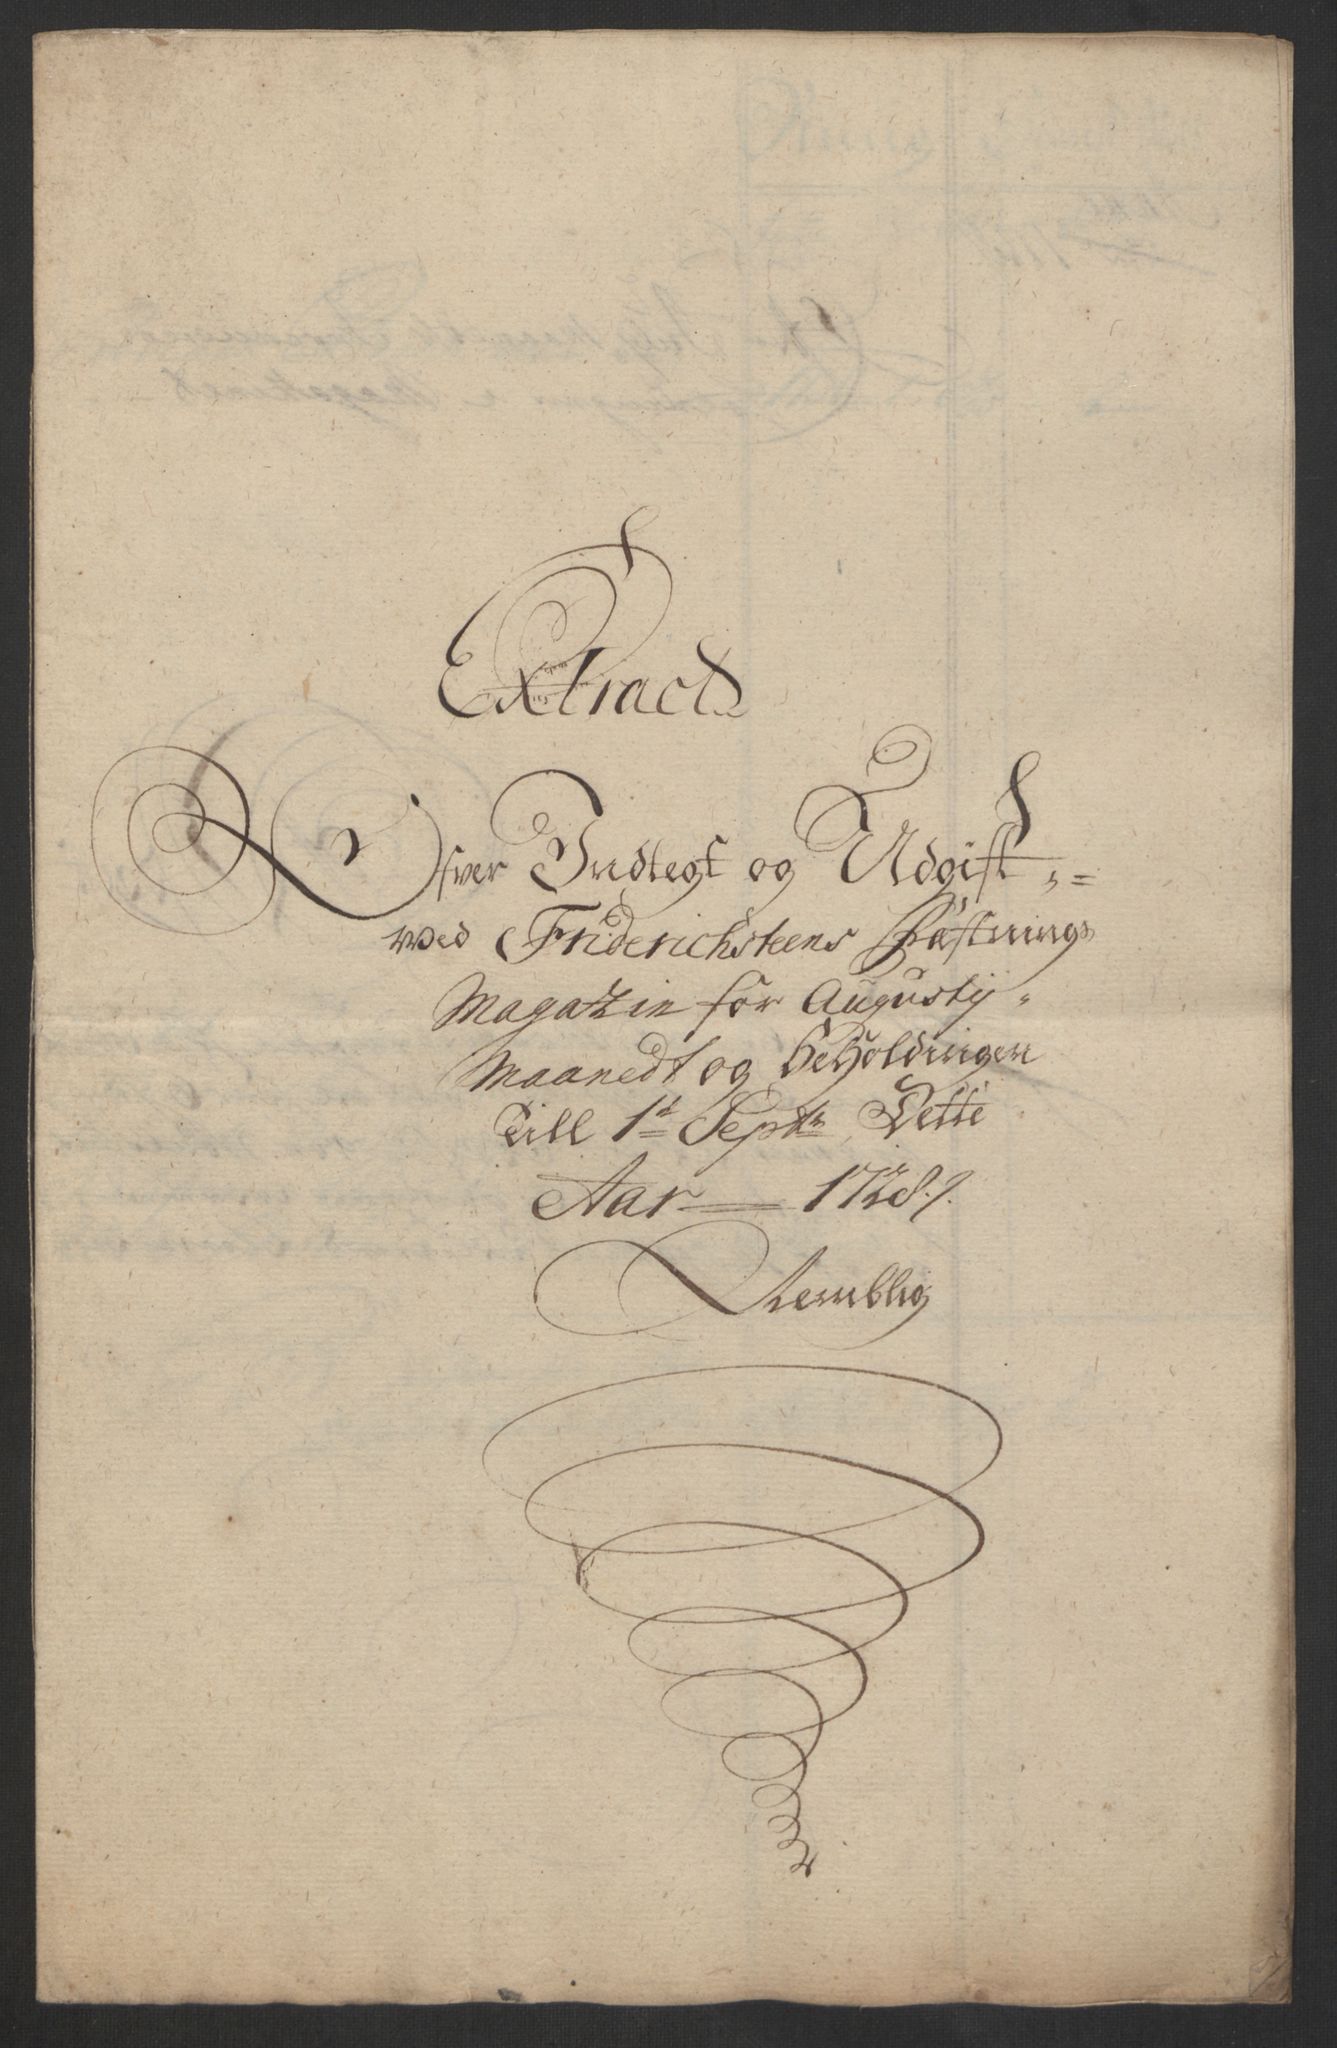 Extract
Ofver Indtegt og Udgift
wed Friderichsteens Fæstnings
Magatzin for Augusty
Maanedt og beholdningen
Till 1t Septbr Dette
Aar 1728.
Nemblig